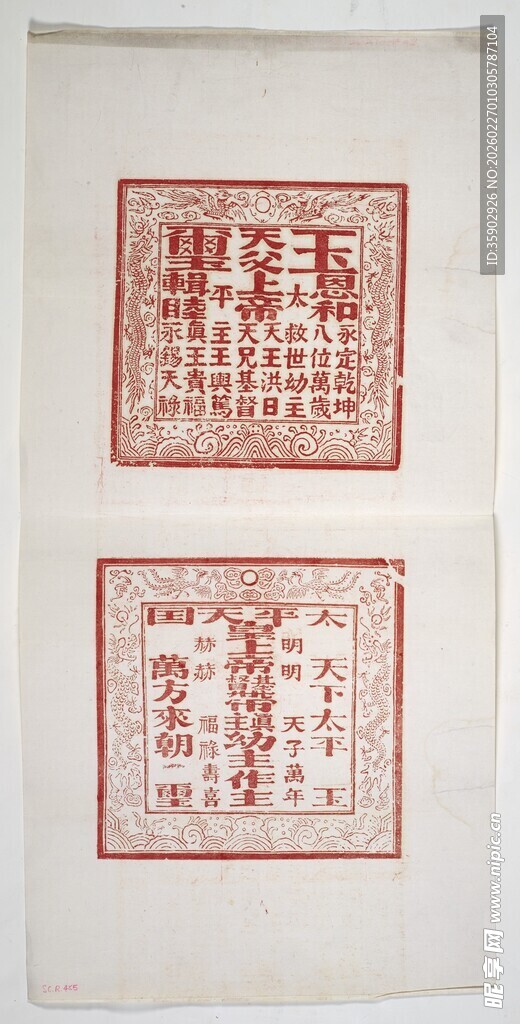 玉
恩和
永定乾坤
八位萬歲
太
救世幼主
天父上帝
天王洪日
天兄基督
平
主王輿篤
璽
輯睦
眞王貴福
永錫天祿
太平天囯
天下太平
玉
明明
天子萬年
皇上帝基督帶瑱幼主作主
赫赫
福祿壽喜
萬方來朝
璽
ID:35902926 NO:20260227010305787104
昵享网 www.nipic.cn